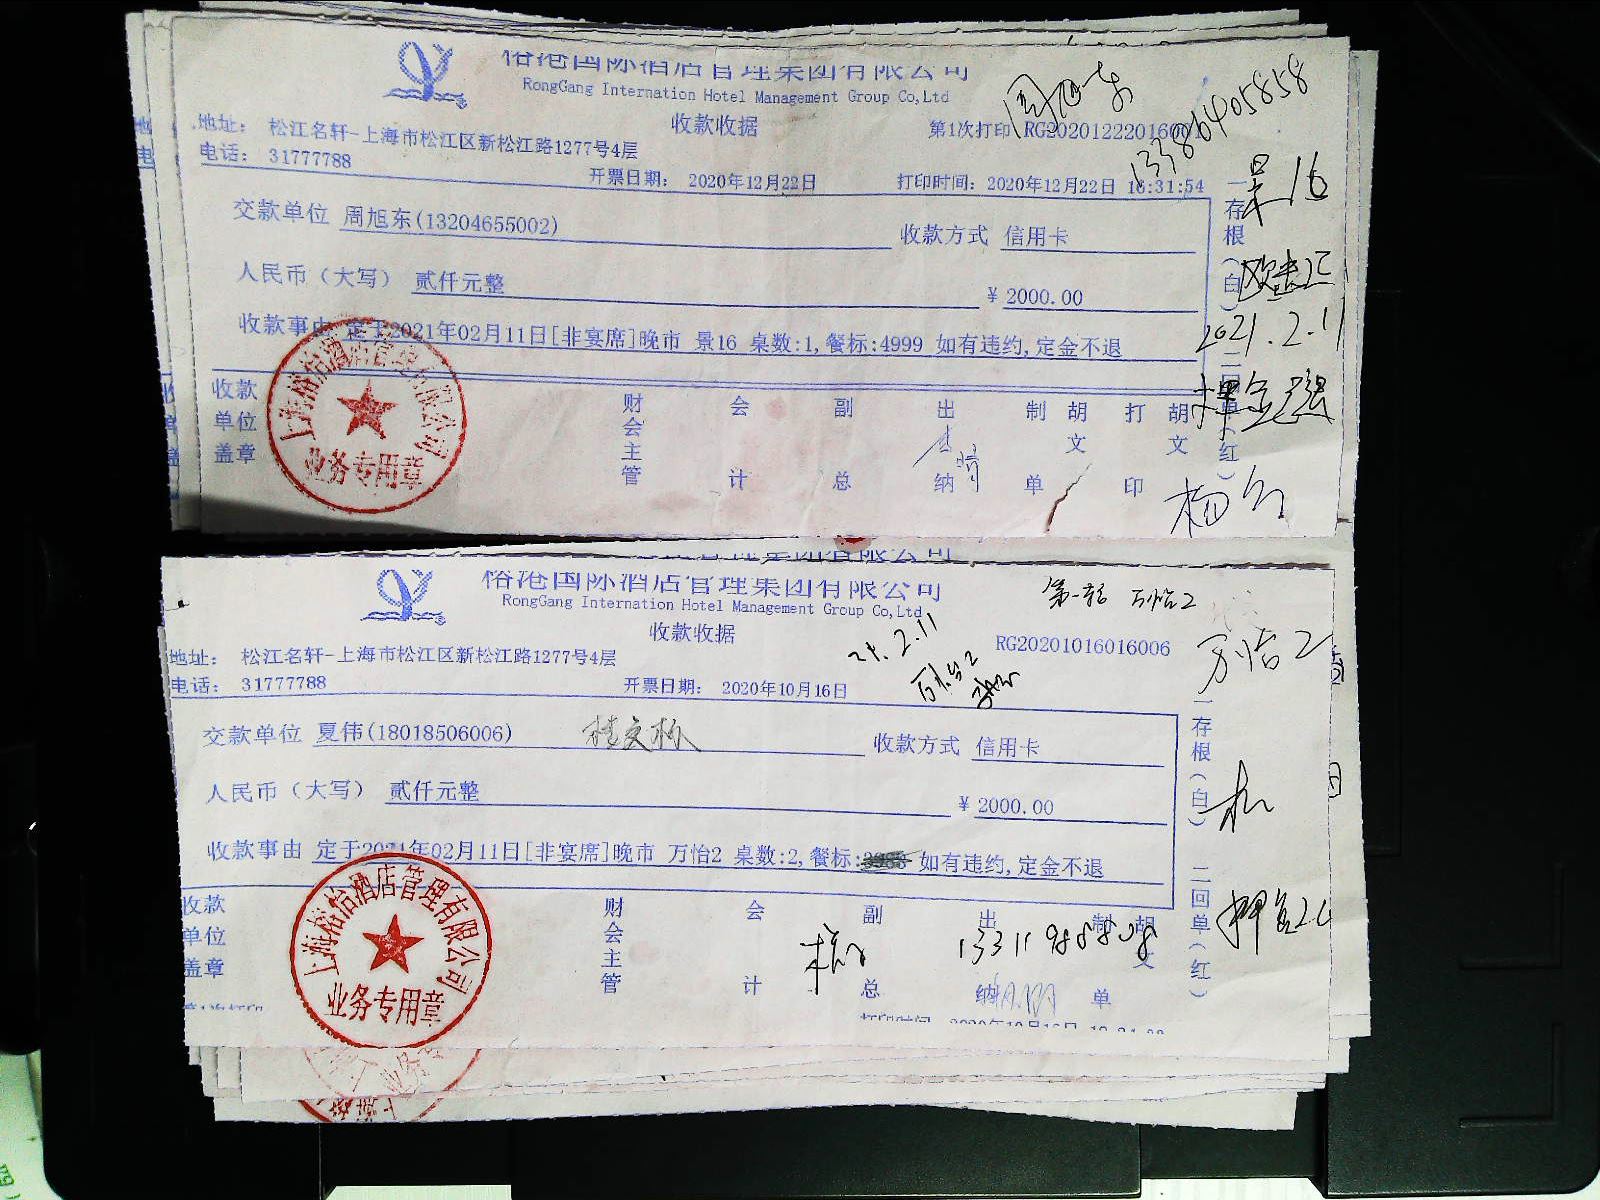 榕港国际酒店管理集团有限公司
RongGang Internation Hotel Management Group Co,Ltd
收款收据
第1次打印 RG20201222016001
地址： 松江名轩-上海市松江区新松江路1277号4层
电话： 31777788
开票日期： 2020年12月22日
打印时间：2020年12月22日 16:31:54
13386405858
景16
交款单位 周旭东(13204655002)
收款方式 信用卡
人民币（大写） 贰仟元整
¥ 2000.00
收款事由 定于2021年02月11日[非宴席]晚市 景16 桌数:1,餐标:4999 如有违约,定金不退
2021.2.11
收款单位盖章
财会主管
会计
副总
出纳
制单
胡文
打印
胡文
一存根（白）
二回单（红）
上海榕怡酒店管理有限公司
业务专用章
榕港国际酒店管理集团有限公司
RongGang Internation Hotel Management Group Co,Ltd
收款收据
万怡2
21.2.11
RG20201016016006
万怡2
地址： 松江名轩-上海市松江区新松江路1277号4层
电话： 31777788
开票日期： 2020年10月16日
交款单位 夏伟(18018506006)
收款方式 信用卡
人民币（大写） 贰仟元整
¥ 2000.00
收款事由 定于2021年02月11日[非宴席]晚市 万怡2 桌数:2,餐标: 如有违约,定金不退
收款单位盖章
财会主管
会计
副总
出纳
制单
胡文
13311988808
一存根（白）
二回单（红）
上海榕怡酒店管理有限公司
业务专用章